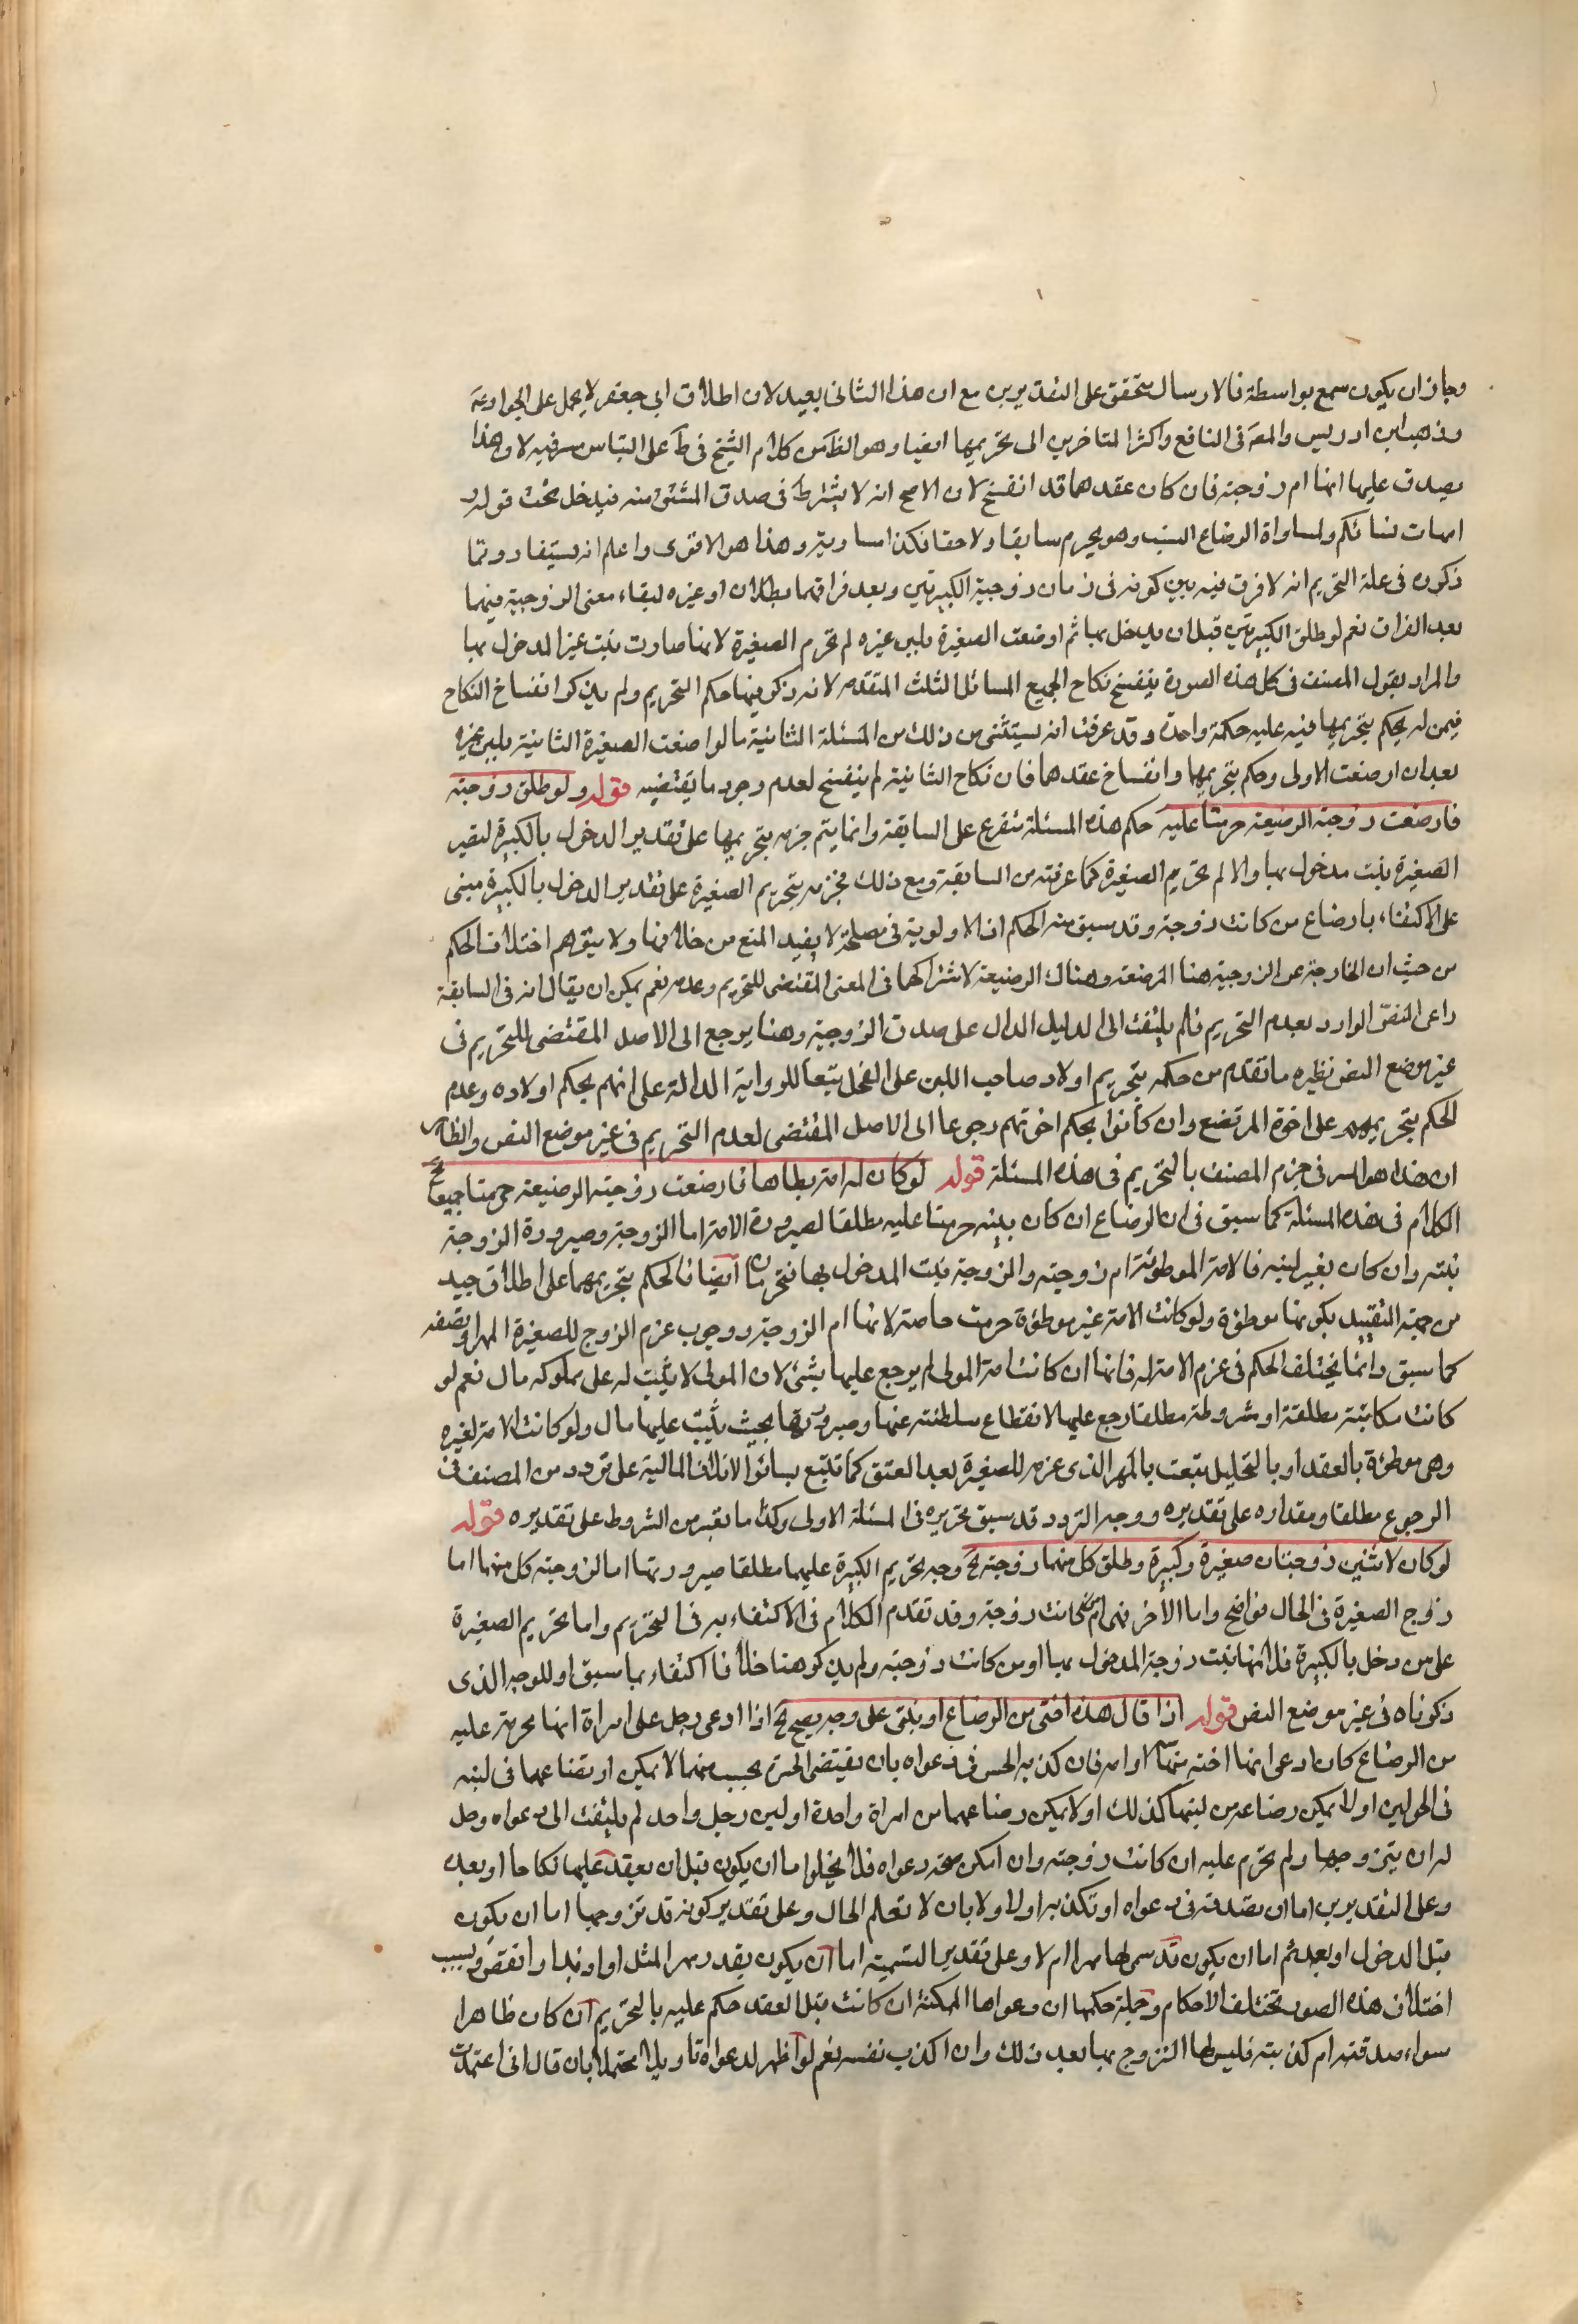 وجاز ان يكون سمع بواسطة فالارسال متحقق على التقديرين مع ان هذا الثانى بعيد لان اطلاق ابى جعفر لا يحمل على الجواد عه
وذهب ابن ادريس والمصَ فى النافع واكثر المتاخرين الى تحريمها ايضا وهو الظَ من كلام الشيخ فى طَ على التباس فيه لان هذا
يصدق عليها انها ام زوجته فان كان عقدهما قد انفسخ لان الاصح انه لا يشترط فى صدق المشتق منه فيدخل تحت قوله
امهات نسائكم ولمساواة الرضاع النسب وهو يحرم سابقا ولاحقا فكذا مساويه وهذا هو الاقوى واعلم انه يستفاد وتما
ذكروه فى علة التحريم انه لا فرق فيه بين كونه فى زمان زوجية الكبيرتين وبعد فراقهما بطلاق او غيره لبقاء معنى الزوجية فيهما
بعد الفراق نعم لو طلق الكبيرتين قبل ان يدخل بهما ثم ارضعت الصغيرة بلبن غيره لم تحرم الصغيرة لانها صارت بنت غير المدخول بها
والمراد بقول المصنف فى كل هذه الصورة ينفسخ نكاح الجميع المسائل الثلث المتقدمه لانه ذكر فيها حكم التحريم ولم يذكر انفساخ النكاح
فيمن لم يحكم بتحريمها فيه عليه حكمة واحدة وقد عرفت انه يستثنى من ذلك من المسئلة الثانية ما لو ارضعت الصغيرة الثانية بلبن غيره
بعد ان ارضعت الاولى وحكم بتحريمها وانفساخ عقدهما فان نكاح الثانية لم ينفسخ لعدم وجود ما يقتضيه قوله ولو طلق زوجته
فارضعت زوجته الرضيعة حرمتا عليه حكم هذه المسئلة متفرع على السابقة وانما يتم جزمه بتحريمها على تقدير الدخول بالكبيرة لتصير
الصغيرة بنت مدخول بها والا لم تحرم الصغيرة كما عرفته من السابقة ومع ذلك فجزمه بتحريم الصغيرة على تقدير الدخول بالكبيرة مبنى
على الاكتفاء بارضاع من كانت زوجته وقد سبق منه الحكم ان الاولوية فى مصلحة لا يفيد المنع من خلافها ولا يتوهم اختلاف الحكم
من حيث ان الخارجة عن الزوجية هنا المرضعة وهناك الرضيعة لاشتراكهما فى المعنى المقتضى للتحريم وعدمه نعم يمكن ان يقال انه فى السابقة
راعى النص الوارد بعدم التحريم فلم يلتفت الى الدليل الدال على صدق الزوجية وهنا يرجع الى الاصل المقتضى للتحريم فى
غير موضع النص نظيره ما تقدم من حكمه بتحريم اولاد صاحب اللبن على الفحل تبعا للرواية الدالة على انهم بحكم اولاده وعدم
الحكم بتحريمهم على اخوة المرتضع وان كانوا بحكم اخوتهم رجوعا الى الاصل المقتضى لعدم التحريم فى غير موضع النص والظاهر
ان هذا هو السر فى جزم المصنف بالتحريم فى هذه المسئلة قوله لو كان له امة يطاها فارضعت زوجته الرضيعة حرمتا جميعا الخ
الكلام فى هذه المسئلة كما سبق فى ان الرضاع ان كان بلبنه حرمتا عليه مطلقا لصيرورة الامة ام الزوجة وصيرورة الزوجة
بنته وان كان بغير لبنه فالامة الموطوئة ام زوجته والزوجة بنت المدخول بها فتحرمان ايضا فالحكم بتحريمهما على اطلاق جيد
من جهة التقييد بكونها موطوءة ولو كانت الامة غير موطوءة حرمت خاصة لانها ام الزوجة ووجوب غرم الزوج للصغيرة المهر او نصفه
كما سبق وانما يختلف الحكم فى غرم الامة له فانها ان كانت امة المولى لم يرجع عليها بشئ لان المولى لا يثبت له على مملوكه مال نعم لو
كانت مكاتبة مطلقة او مشروطة مطلقا رجع عليها لانقطاع سلطنته عنها وصيرورتها بحيث يثبت عليها مال ولو كانت الامة لغيره
وهى موطوءة بالعقد او بالتحليل يتبعت بالمهر الذى غرمه للصغيرة بعد العتق كما تتبع بسائر الاتلاف المالية على تردد من المصنف فى
الرجوع مطلقا ومقداره على تقديره ووجه التردد قد سبق تحريره فى المسئلة الاولى وكذا ما يعتبر من الشروط على تقديره قوله
لو كان لاثنين زوجتان صغيرة وكبيرة وطلق كل منهما زوجته الخ وجه تحريم الكبيرة عليهما مطلقا صيرورتها اما لزوجة كل منهما اما
زوج الصغيرة فى الحال فواضح واما الاخر فهى ام من كانت زوجته وقد تقدم الكلام فى الاكتفاء به فى التحريم واما تحريم الصغيرة
على من دخل بالكبيرة فلانها بنت زوجة المدخول بها او من كانت زوجته ولم يذكر هنا خلافا اكتفاء بما سبق او للوجه الذى
ذكرناه فى غير موضع النص قوله اذا قال هذه اختى من الرضاع او بنتى على وجه يصح الخ اذا ادعى رجل على امراة انها محرمة عليه
من الرضاع كان ادعى انها اخته منها او امه فان كذبه الحس فى دعواه بان يقتضى الحس بحسب سنهما لا يمكن ارتضاعهما فى لبنه
فى الحولين او لا يمكن رضاعه من لبنها كذلك او لا يمكن رضاعهما من امراة واحدة او لبن رجل واحد لم يلتفت الى دعواه وحل
له ان يتزوجها ولم تحرم عليه ان كانت زوجته وان امكن صحة دعواه فلا يخلو اما ان يكون قبل ان يعقد عليها نكاحا او بعده
وعلى التقديرين اما ان تصدقه فى دعواه او تكذبه او لا ولا بان لا تعلم الحال وعلى تقدير كونه قد تزوجها اما ان يكون
قبل الدخول او بعده ثم اما ان يكون قد سمى لها مهرا ام لا وعلى تقدير التسمية اما ان يكون بقدر مهر المثل او ازيد او انقص وبسبب
اختلاف هذه الصور تختلف الاحكام وجملة حكمها ان دعواها الممكنة ان كانت قبل العقد حكم عليه بالتحريم ان كان ظاهرا
سواء صدقته ام كذبته فليس لها التزوج بها بعد ذلك وان اكذب نفسه نعم لو اظهر لدعواه تاويلا محتملا بان قال انى اعتمدت